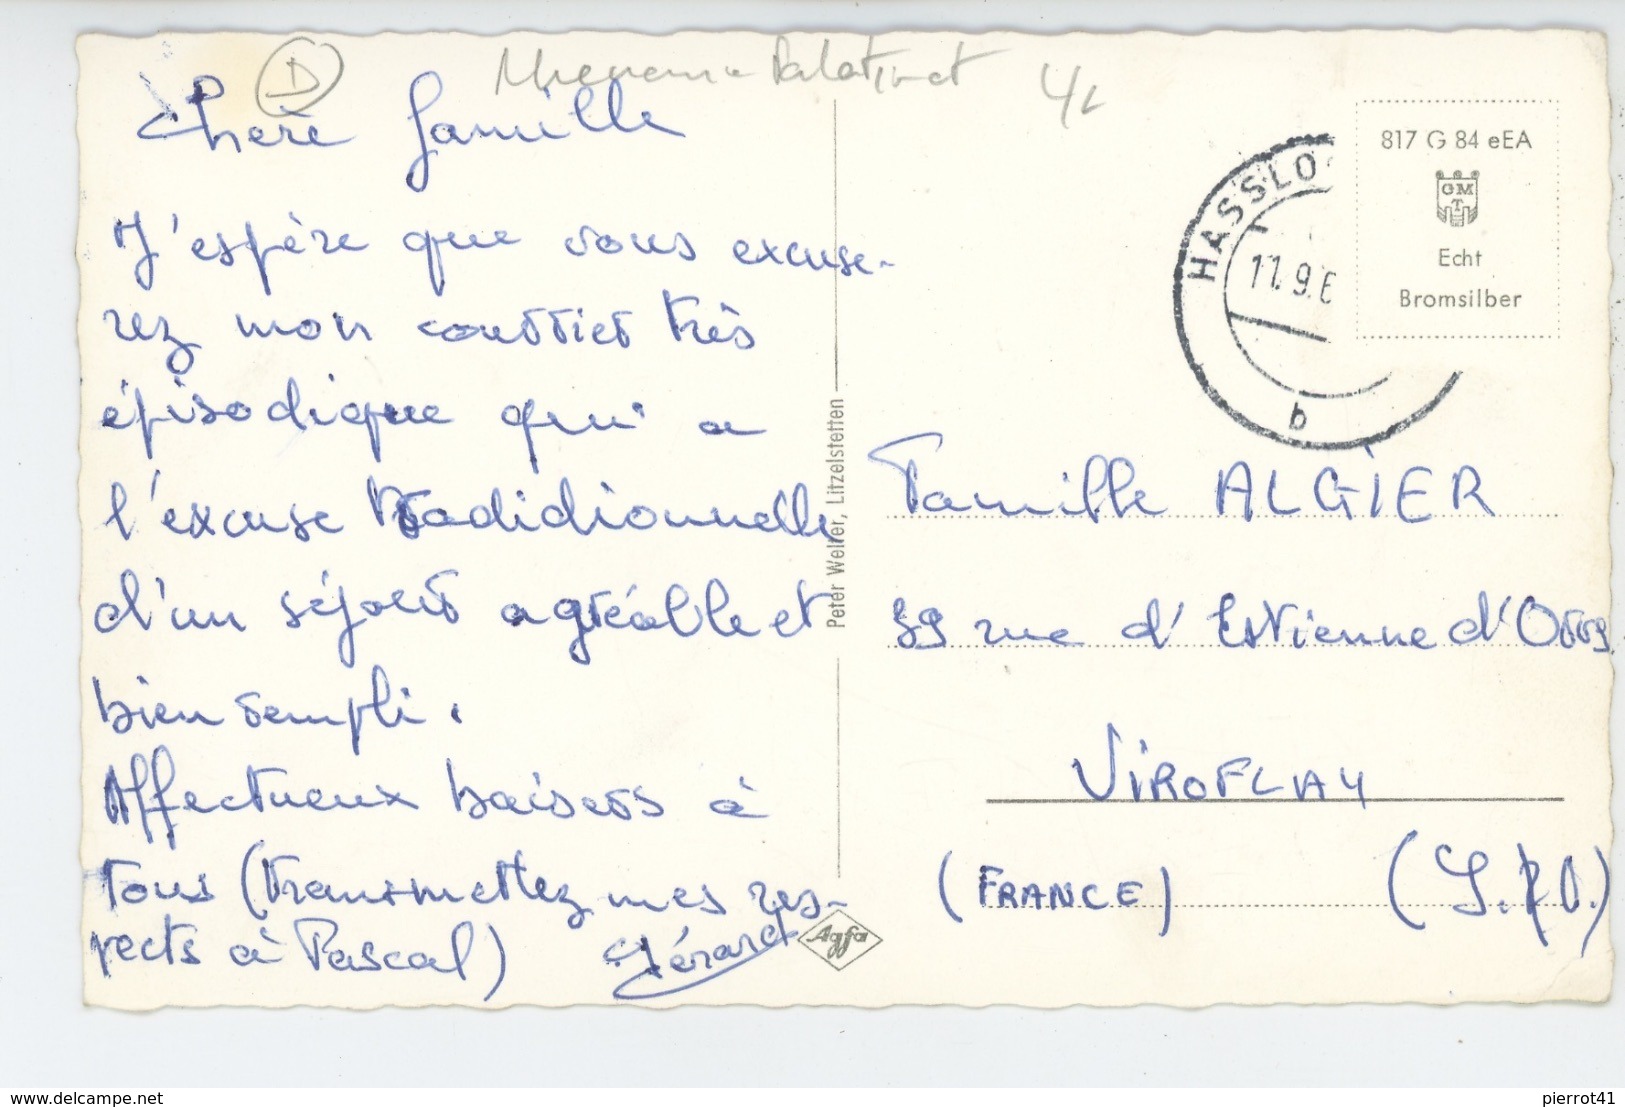 D
Rhenanie Palatinat
Chère famille
J'espère que vous excuse-
rez mon courrier très
épisodique qui a
l'excuse tradidionnelle
d'un séjour agréable et
bien rempli.
Affectueux baisers à
tous (transmettez mes res-
pects à Pascal) Gérard
Peter Welter, Litzelstetten
Agfa
HASSLO
11.9.6
b
817 G 84 eEA
GMT
Echt
Bromsilber
Famille ALGIER
39 rue d'Estienne d'Orves
VIROFLAY
(FRANCE) (S.&O.)
www.delcampe.net
pierrot41